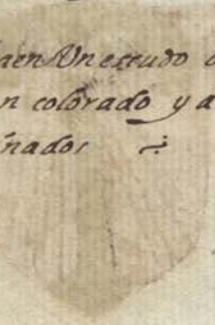 aen Un escudo
n colorado y a
nados